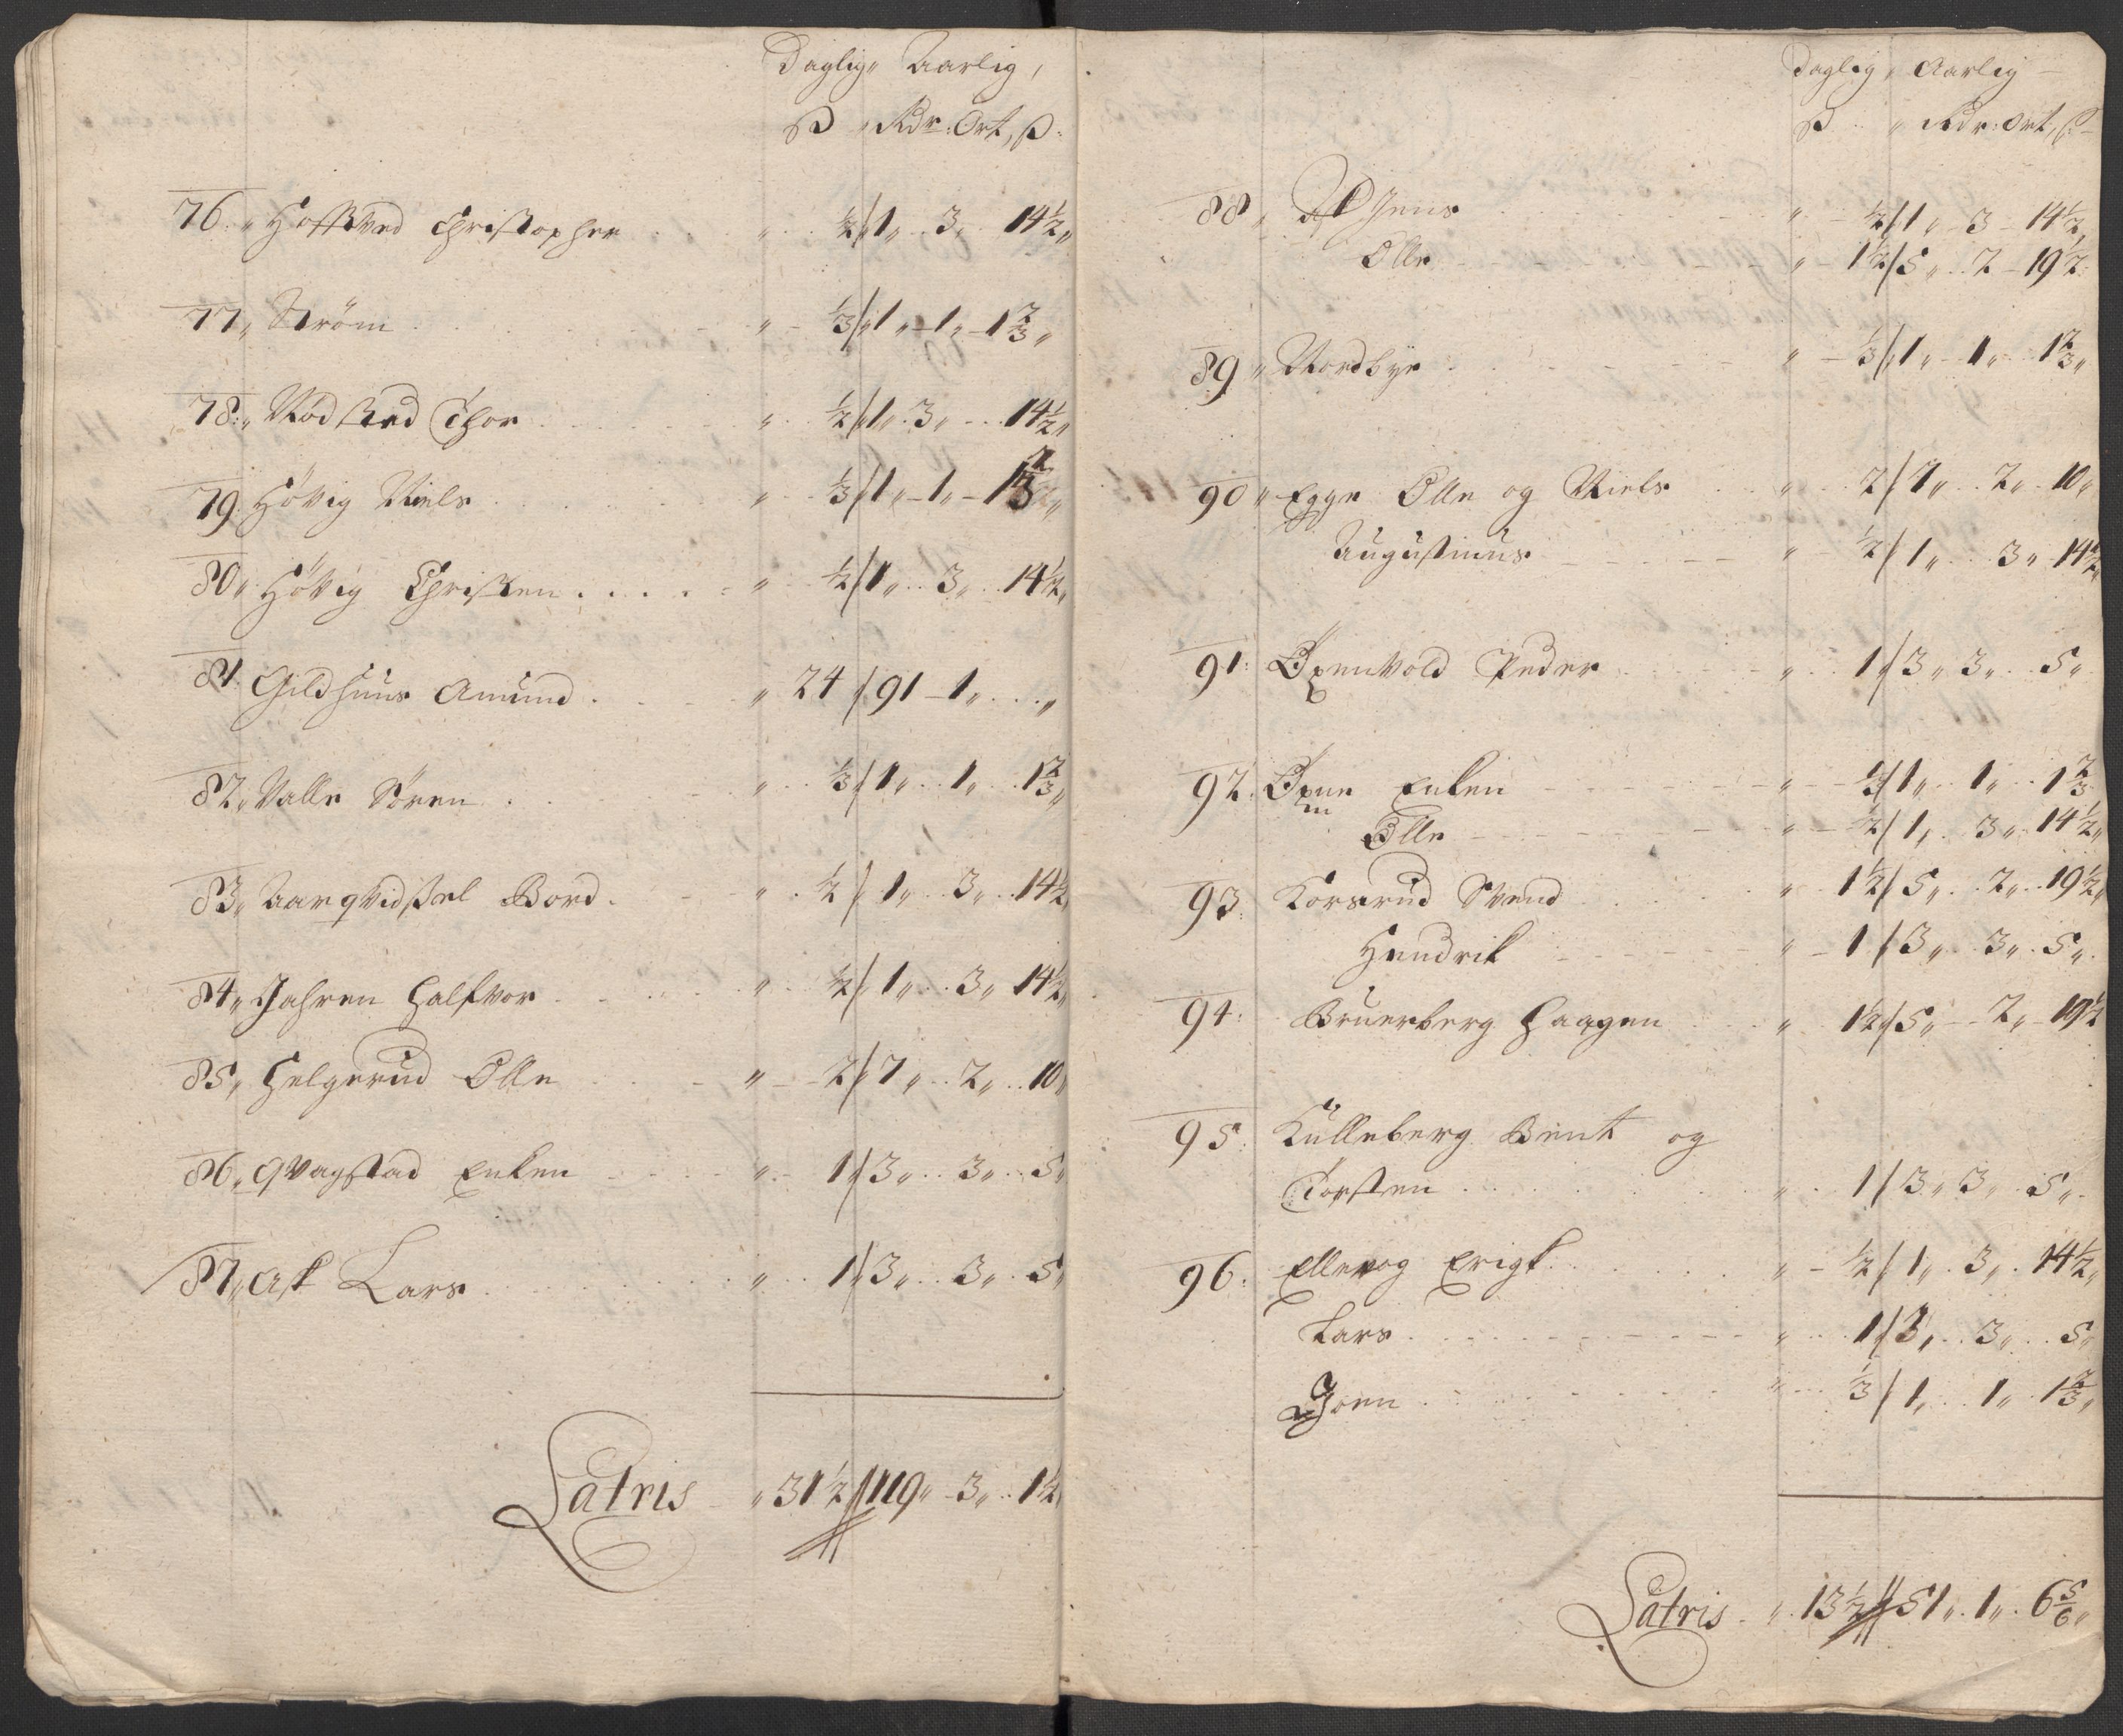 Daglig„ Aarlig,
ß „ Rdr: Ort, ß:
76: „ Hoffstved Christopher „ ½ /1„ 3„ 14½„
77„ Ström „ ⅓ /1„ 1„ 1⅔„
78:„ Nödsted Thor „ ½ /1„ 3„ 14½„
79. Hövig Niels „ ⅓ /1„ 1„ 1⅔„
80„ Hövig Christen „ ½ /1„ 3„ 14½„
81. Gildhuus Amund „ 24 /91 1„ „
82„ Valle Sören „ ⅓ /1„ 1„ 1⅔„
83„ Aarqvidstel Bord „ ½ /1„ 3„ 14½
84„ Jahren Halfvor „ ½ /1„ 3„ 14½„
85„ Helgerud Olle „ 2 /7„ 2„ 10„
86„ Qvagstad Enken „ 1 /3„ 3„ 5„
87„ Ask Lars „ 1 /3„ 3„ 5„
Latris „ 31½ //119„ 3„ 1½
Daglig, Aarlig
ß „ Rdr: Ort, ß
88„ Ask Jens „ ½ /1„ 3 14½„
Olle „ 1½ /5„ 2 19½„
89„ Nordbye „ ⅓ /1„ 1„ 1⅔„
90„ Egge Olle og Niels „ 2 /7„ 2„ 10„
Augustinus „ ½ /1„ 3„ 14½„
91: Öxenvold Peder „ 1 /3„ 3„ 5„
92: Enken „ ⅓ /1„ 1„ 1⅔
Olle „ ½ /1„ 3„ 14½„
93: Korsrud Svend „ 1½ /5„ 2„ 19½„
Hendrik „ 1 /3„ 3„ 5„
94: Bruerberg Haagen „ 1½ /5„ 2„ 19½
95: Kulleberg Bent og
Torsten „ 1 /3„ 3„ 5„
96: Ellevog Erigk „ ½ /1„ 3„ 14½„
Lars „ 1 /3„ 3„ 5„
Joen „ ⅓ /1„ 1„ 1⅔„
Latris „ 13½ // 51„ 1„ 6⅚„